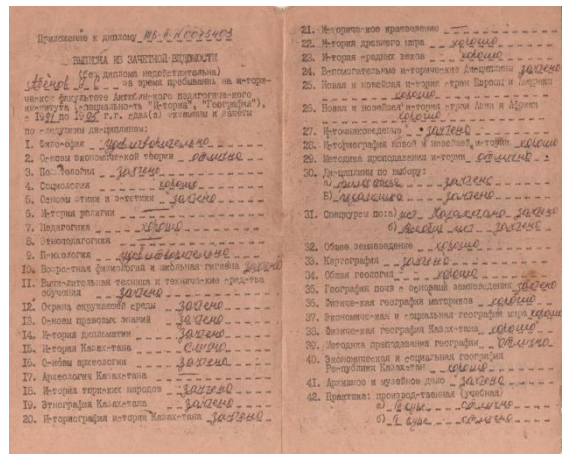 Приложение к диплому
ВЫПИСКА ИЗ ЗАЧЕТНОЙ ВЕДОМОСТИ
(без диплома недействительна)
за время пребывания на истори-
ческом факультете Актюбинского педагогического
института (специальность "История", "География"),
с 1991 по 1995 г.г. сдал(а) экзамены и зачеты
по следующим дисциплинам:
1. Философия удовлетворительно
2. Основы экономической теории отлично
3. Политология зачтено
4. Социология хорошо
5. Основы этики и эстетики зачтено
6. История религии —
7. Педагогика хорошо
8. Этнопедагогика
9. Психология удовлетворительно
10. Возрастная физиология и школьная гигиена зачтено
11. Вычислительная техника и технические средства
обучения зачтено
12. Охрана окружающей среды зачтено
13. Основы правовых знаний зачтено
14. История дипломатии зачтено
15. История Казахстана отлично
16. Основы археологии зачтено
17. Археология Казахстана
18. История тюркских народов зачтено
19. Этнография Казахстана зачтено
20. Историография истории Казахстана зачтено
21. Историческое краеведение —
22. История древнего мира хорошо
23. История средних веков хорошо
24. Вспомогательные исторические дисциплины зачтено
25. Новая и новейшая история стран Европы и Америки
хорошо
26. Новая и новейшая история стран Азии и Африки
хорошо
27. Источниковедение зачтено
28. Историография новой и новейшей истории хорошо
29. Методика преподавания истории отлично
30. Дисциплины по выбору:
а) зачтено
б) зачтено
31. Спецкурсы по: а) ист. Казахстана зачтено
б) ист. зачтено
32. Общее землеведение хорошо
33. Картография зачтено
34. Общая геология хорошо
35. География почв с основами землеведения зачтено
36. Физическая география материков хорошо
37. Экономическая и социальная география мира хорошо
38. Физическая география Казахстана хорошо
39. Методика преподавания географии отлично
40. Экономическая и социальная география
Республики Казахстан хорошо
41. Архивное и музейное дело зачтено
42. Практика: производственная (учебная)
а) курс отлично
б) курс отлично